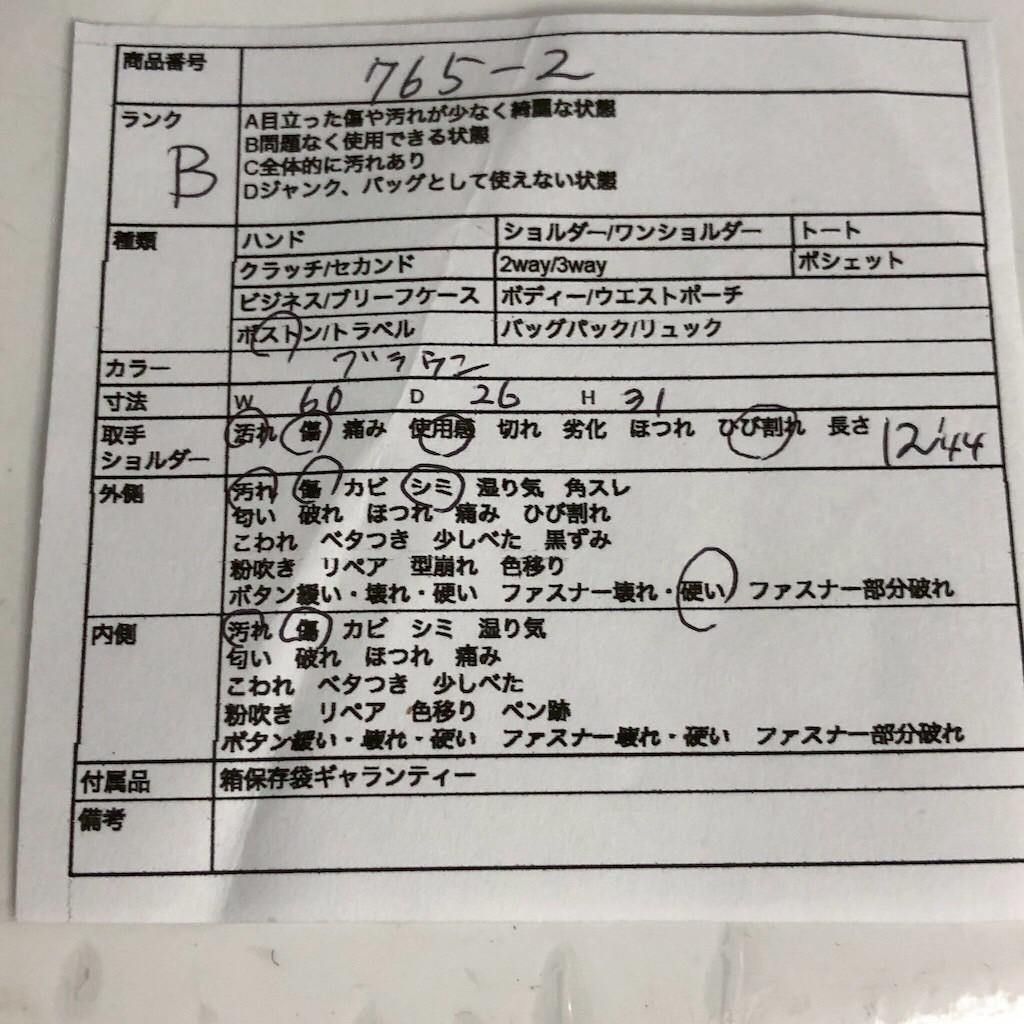 商品番号 765-2
ランク B
A目立った傷や汚れが少なく綺麗な状態
B問題なく使用できる状態
C全体的に汚れあり
Dジャンク、バッグとして使えない状態
種類 ハンド ショルダー/ワンショルダー トート
クラッチ/セカンド 2way/3way ポシェット
ビジネス/ブリーフケース ボディー/ウエストポーチ
ボストン/トラベル バッグパック/リュック
カラー ブラウン
寸法 W 60 D 26 H 31
取手 汚れ 傷 痛み 使用感 切れ 劣化 ほつれ ひび割れ 長さ 12,44
ショルダー
外側 汚れ 傷 カビ シミ 湿り気 角スレ
匂い 破れ ほつれ 痛み ひび割れ
こわれ ベタつき 少しべた 黒ずみ
粉吹き リペア 型崩れ 色移り
ボタン緩い・壊れ・硬い ファスナー壊れ・硬い ファスナー部分破れ
内側 汚れ 傷 カビ シミ 湿り気
匂い 破れ ほつれ 痛み
こわれ ベタつき 少しべた
粉吹き リペア 色移り ペン跡
ボタン緩い・壊れ・硬い ファスナー壊れ・硬い ファスナー部分破れ
付属品 箱保存袋ギャランティー
備考